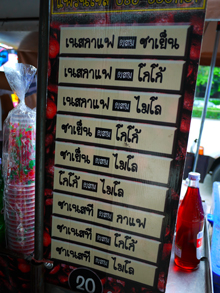 เนสกาแฟ ผสม ชาเย็น
เนสกาแฟ ผสม โกโก้
เนสกาแฟ ผสม ไมโล
ชาเย็น ผสม โกโก้
ชาเย็น ผสม ไมโล
โกโก้ ผสม ไมโล
ชาเนสที ผสม กาแฟ
ชาเนสที ผสม โกโก้
ชาเนสที ผสม ไมโล
20